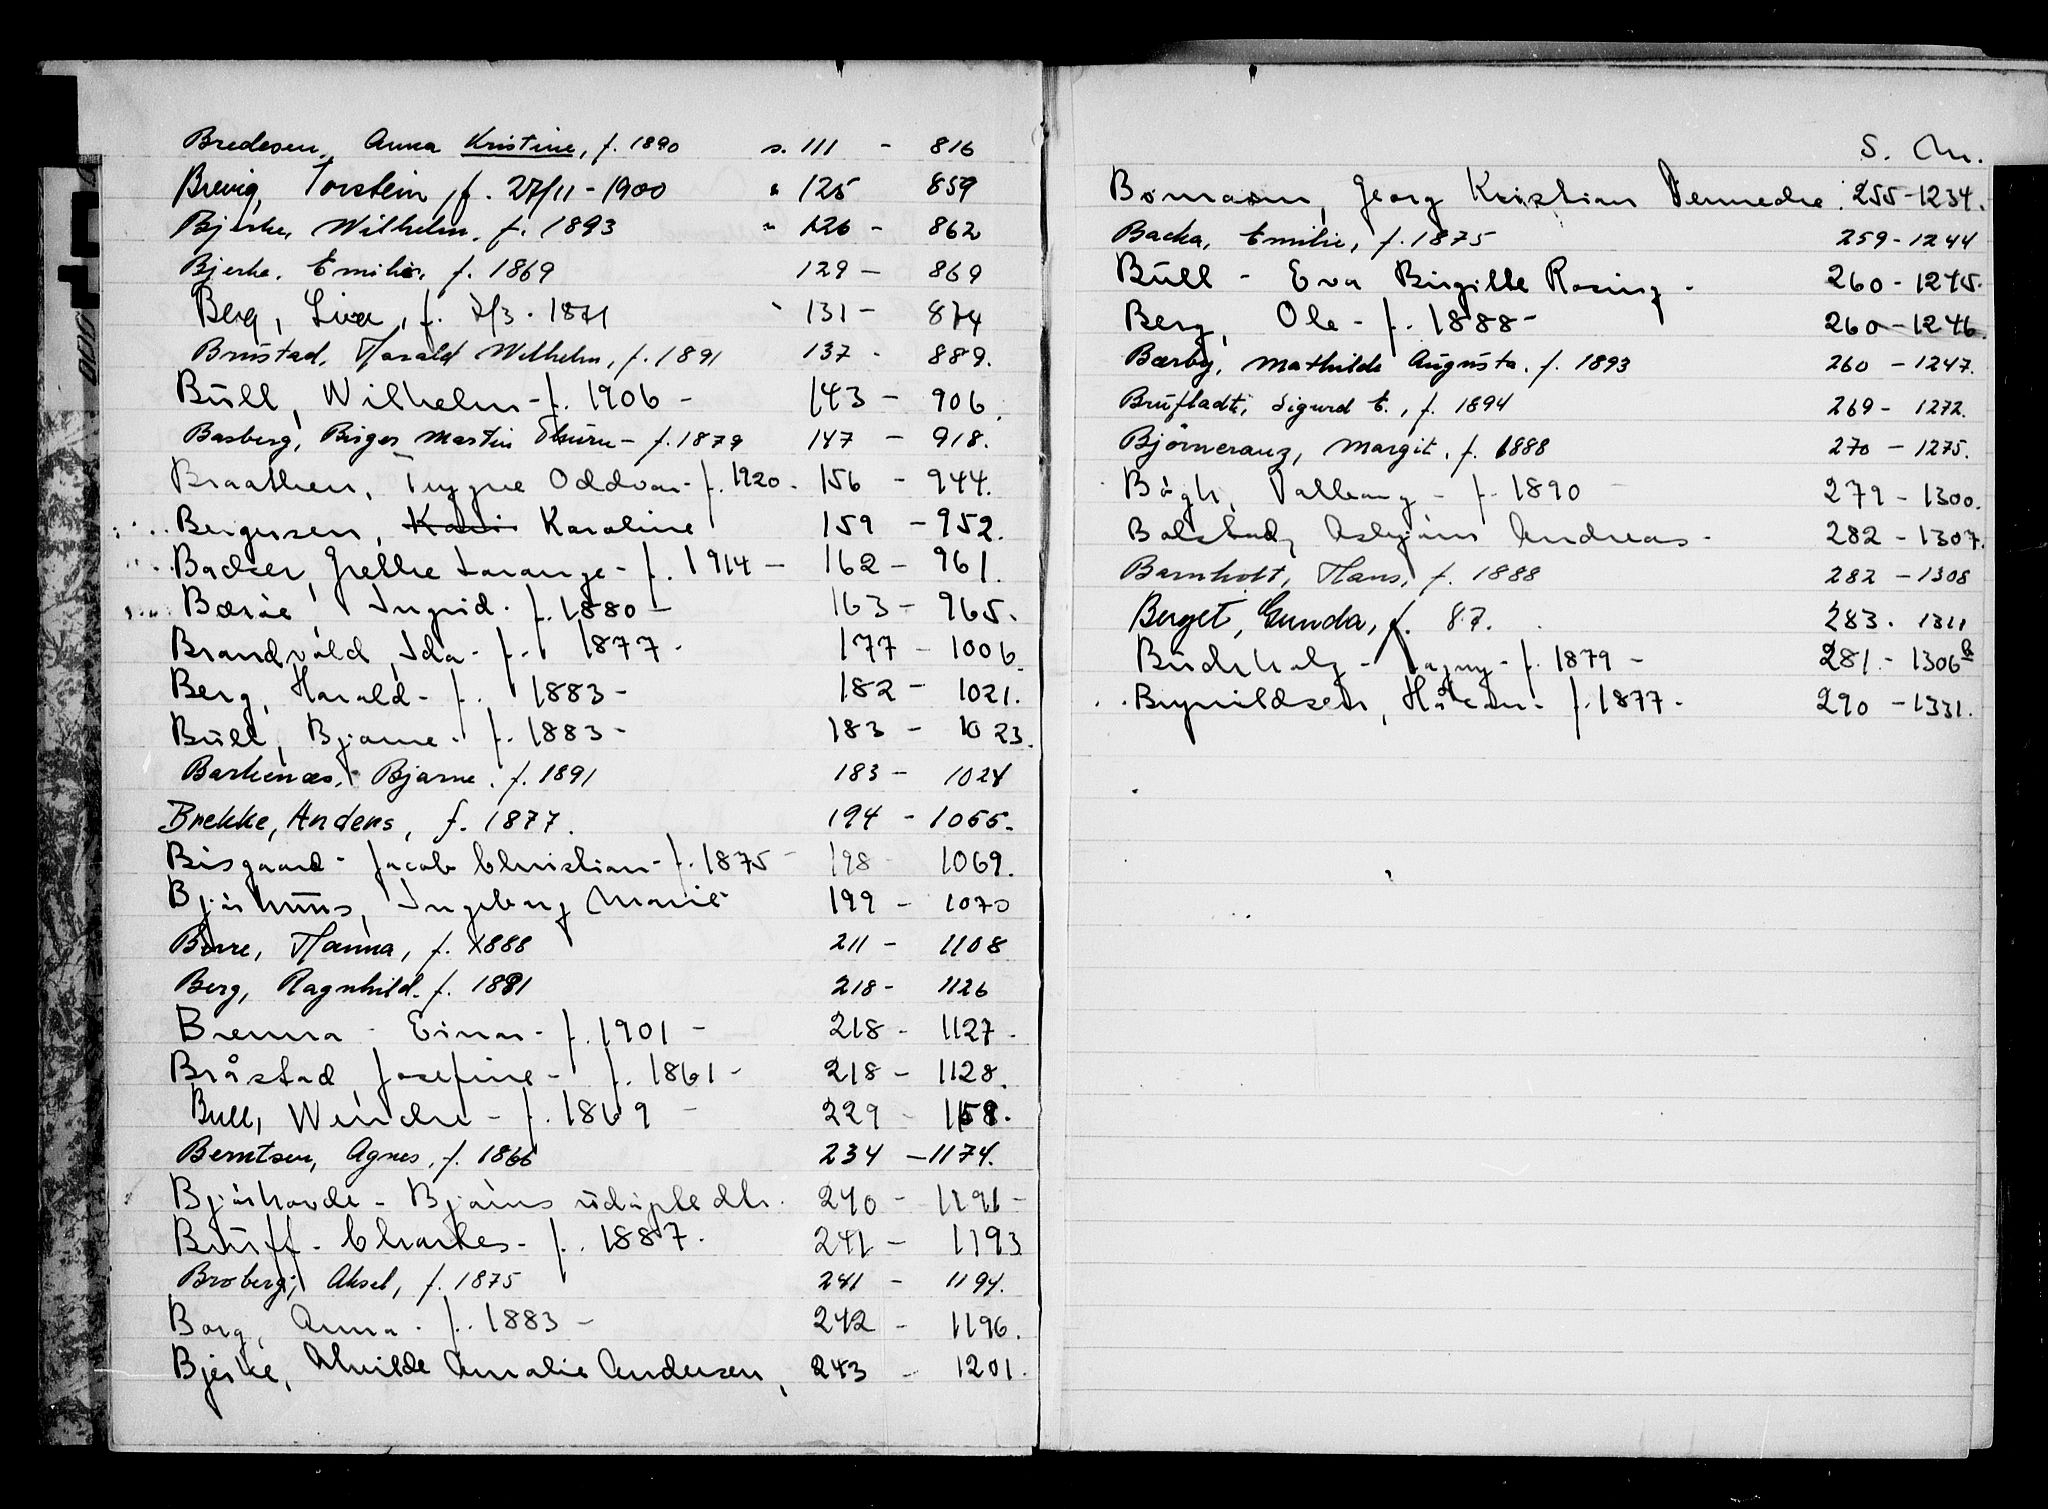 Bredesen, Anna Kristine, f. 1890 s. 111 - 816
Brevig, Torstein, f. 27/11-1900 " 125 859
Bjerke, Wilhelm. f. 1893 " 126 - 862
Bjerke. Emilie. f. 1869 129 - 869
Berg, Lina, f. 7/3 - 1871 " 131 - 874
Brustad, Harald Wilhelm, f. 1891 137 - 889.
Bull, Wilhelm - f. 1906 - 143 - 906.
Basberg, Birger Martin Thure - f. 1879 147 - 918.
Braathen, Trygve Oddvar - f. 1920. 156 - 944.
Bergersen, Kari Karoline 159 - 952.
Backer, Grethe Lorange - f. 1914 - 162 - 961.
Bærøe, Ingrid. f. 1880 - 163 - 965.
Brandvold, Ida - f. 1877. 177 - 1006.
Berg, Harald - f. 1883 - 182 - 1021.
Bull, Bjarne - f. 1883 - 183 - 1023.
Barkenæs, Bjarne. f. 1891 183 - 1024
Brekke, Anders, f. 1877. 194 - 1055.
Bisgaard - Jacob Christian - f. 1875 - 198 - 1069.
Bjørhuus, Ingeborg Marie 199 - 1070
Borre, Hanna, f. 1888 211 - 1108
Berg, Ragnhild. f. 1881 218 - 1126
Brenna - Einar - f. 1901 - 218 - 1127.
Bråstad, Josefine - f. 1861 - 218 - 1128.
Bull, Wenche - f. 1869 - 229 - 1158.
Berntsen, Agnes, f. 1866 234 - 1174.
Bjørhovde - Bjørns udøpte dtr. 240 - 1191 -
Bruff - Charles - f. 1887. 241 - 1193
Broberg, Aksel, f. 1875 241 - 1194.
Borg, Anna - f. 1883 - 242 - 1196.
Bjerke, Alvilde Amalie Andersen, 243 - 1201.
S. Nr.
Bomann, Georg Kristian Vennecke. 255 - 1234.
Backa, Emilie, f. 1875 259 - 1244
Bull - Eva Birgitte Rosing - 260 - 1245.
Berg, Ole - f. 1888 - 260 - 1246.
Bærby, Mathilde Augusta. f. 1893 260 - 1247.
Brufladt, Sigurd E., f. 1894 269 - 1272.
Bjørneraug, Margit, f. 1888 270 - 1275.
Bøgh, Valborg - f. 1890 279 - 1300.
Bolstad, Asbjørn Andreas - 282 - 1307.
Barnholt, Hans, f. 1888 282 - 1308
Berget, Gunda, f. 87. 283. 1311
Buchholz - Dagny - f. 1879 - 281. - 1306 b
Brynildsen, Håkon - f. 1877 - 290 - 1331.